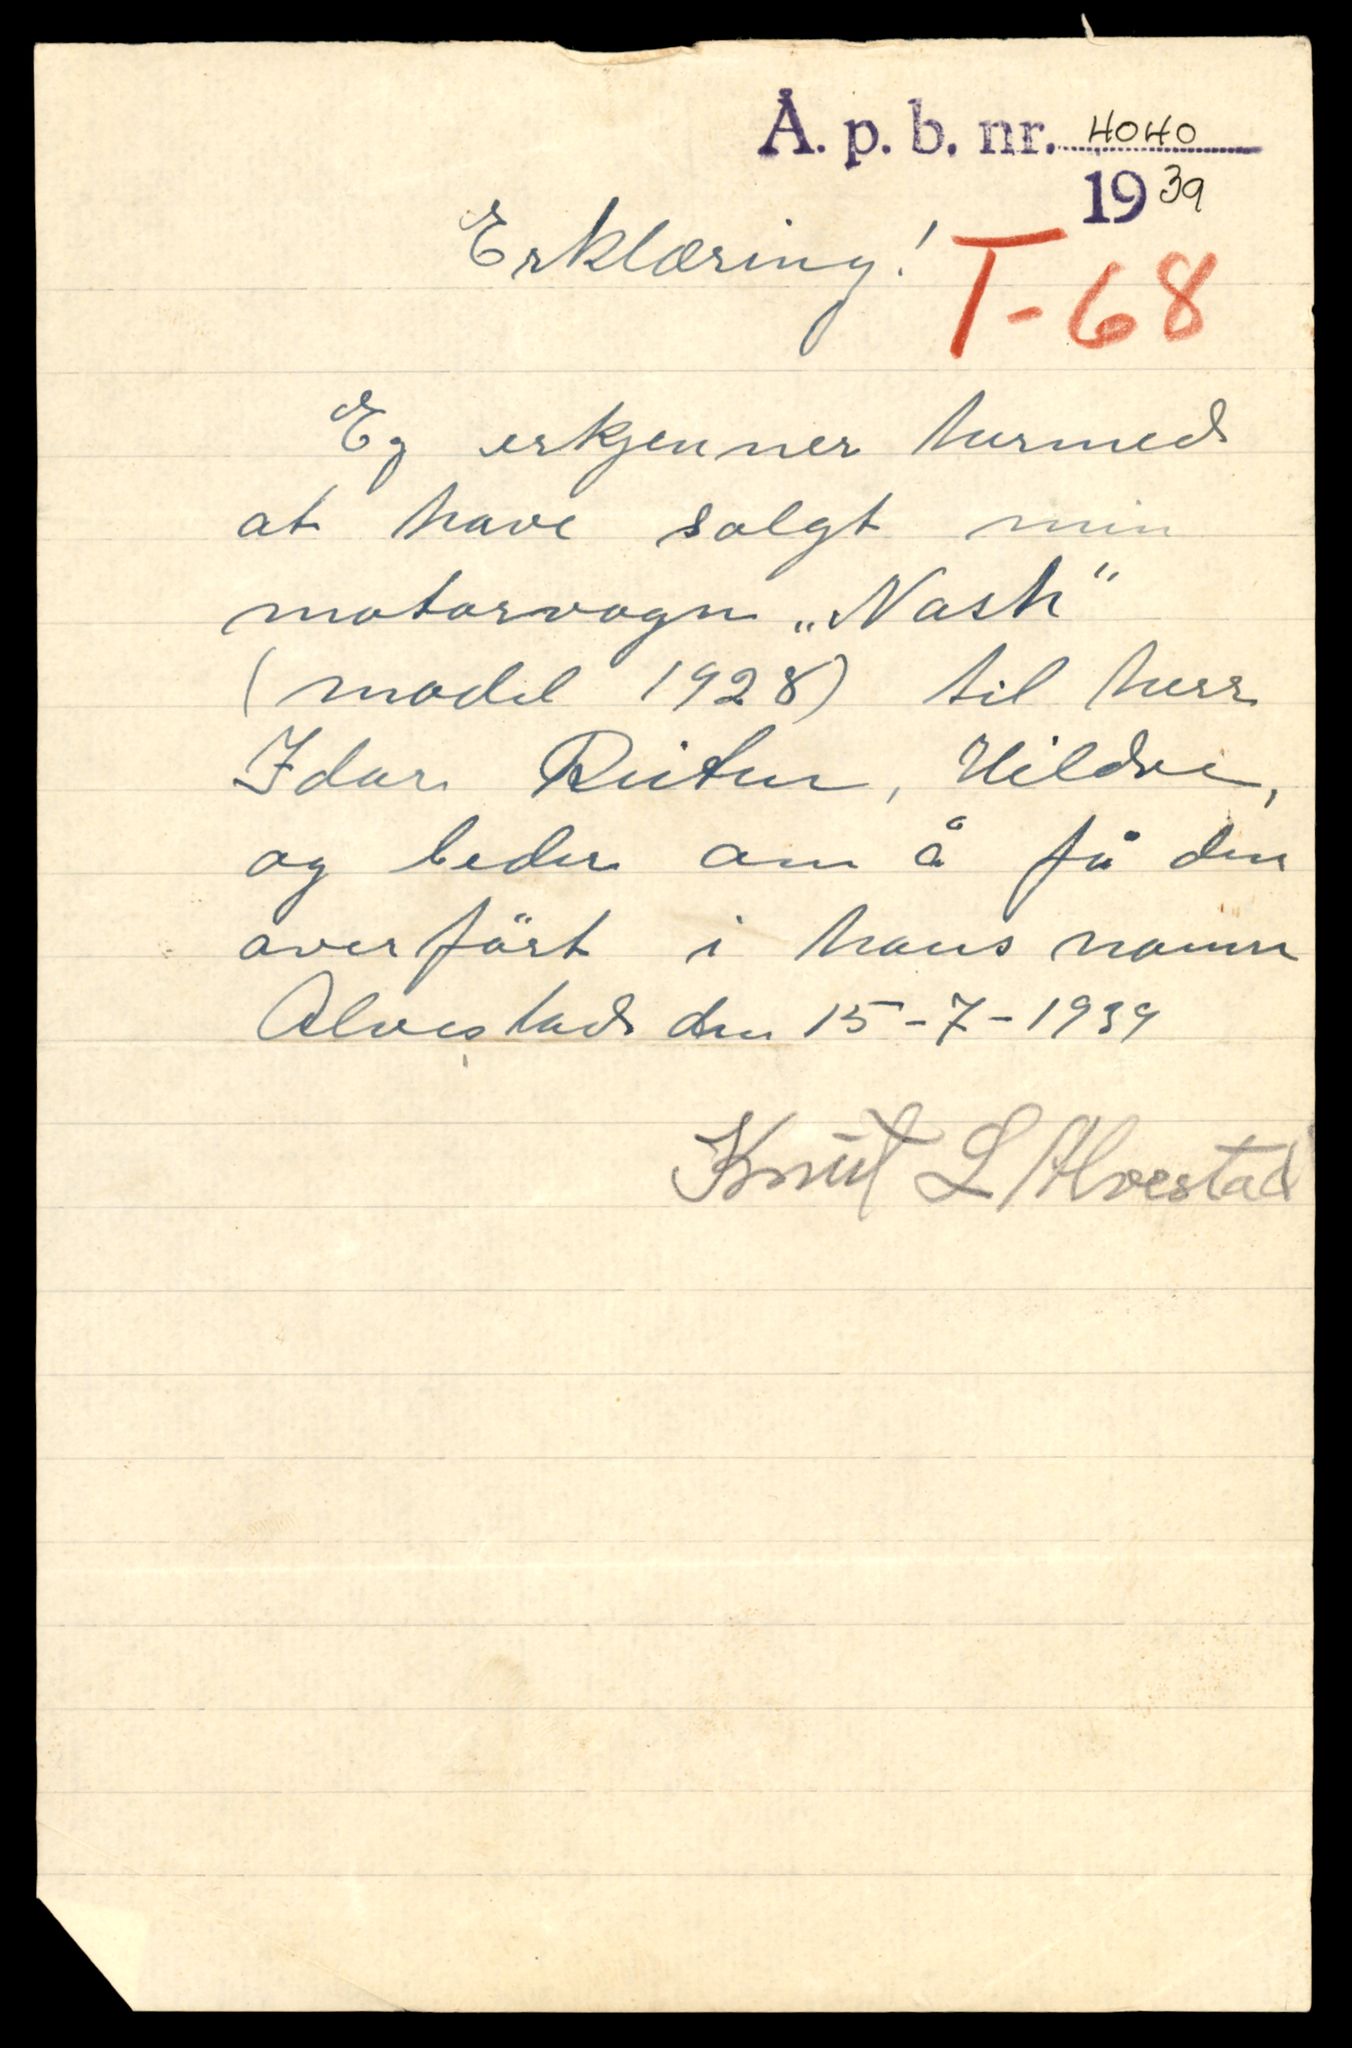 Å. p. b. nr. 4040
1939
Erklæring!
T-68
Eg erkjenner hermed
at have solgt min
motorvogn „Nash"
(model 1928) til herr
Idar Reiten, Hildre,
og beder om å få den
overfört i hans namn
Alvestad den 15-7-1939
Knut L Alvestad